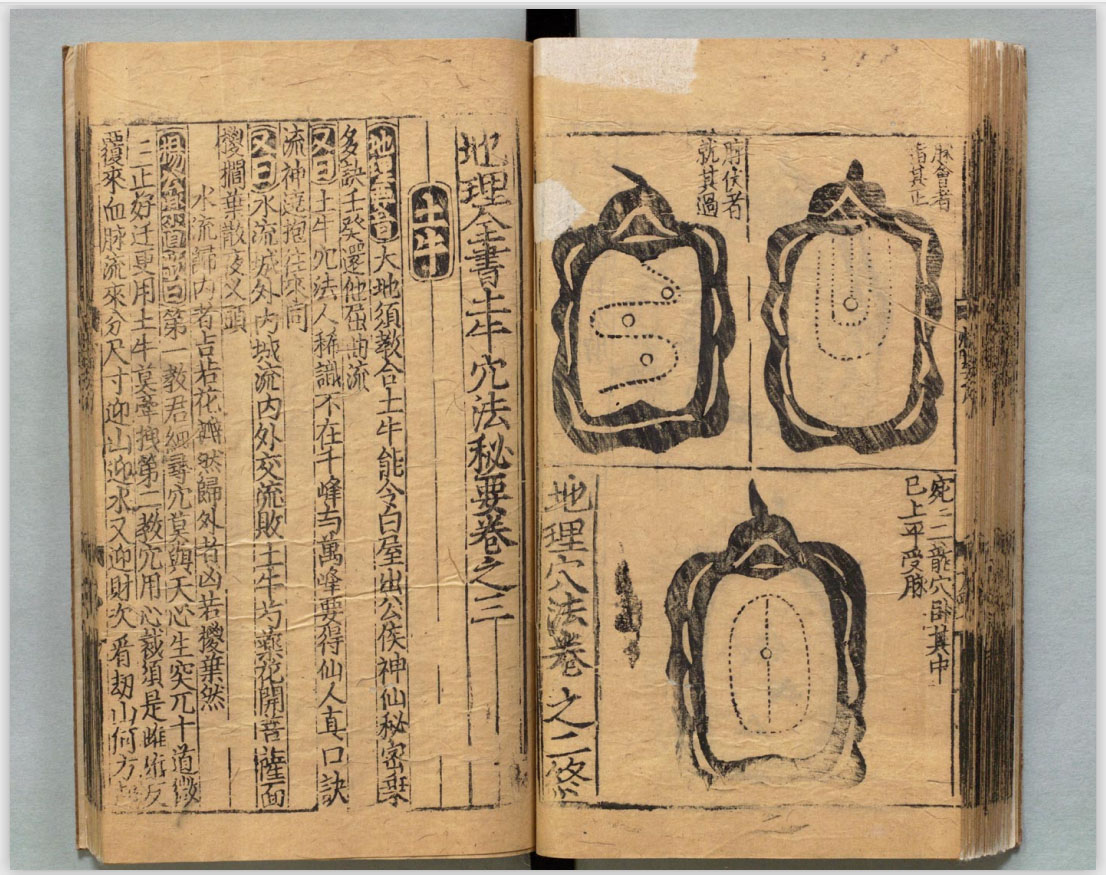 脉會者
當其正
脉俠者
就其過
宛二龍穴卧其中
已上平受脉
地理穴法卷之二終
地理全書土牛穴法秘要卷之三
土牛
地理 大地須教合土牛能令白屋出公侯神仙秘密無
多訣壬癸還他强曲流
又曰土牛穴法人稀識不在千峰与萬峰要得仙人真口訣
流神遶抱往來同
又曰水流城外内城流内外交流敗土牛芍藥花開菩薩面
椶櫚葉散夜叉頭
水流歸内者吉若花瓣然歸外者凶若椶葉然
楊公 曰第一教君細尋穴莫與天心生突兀十道微
三正好迁更用土牛莫牽拽第二教穴用心裁須是雌雄反
覆來血脉流來分尺寸迎山迎水又迎財次看劫山何方